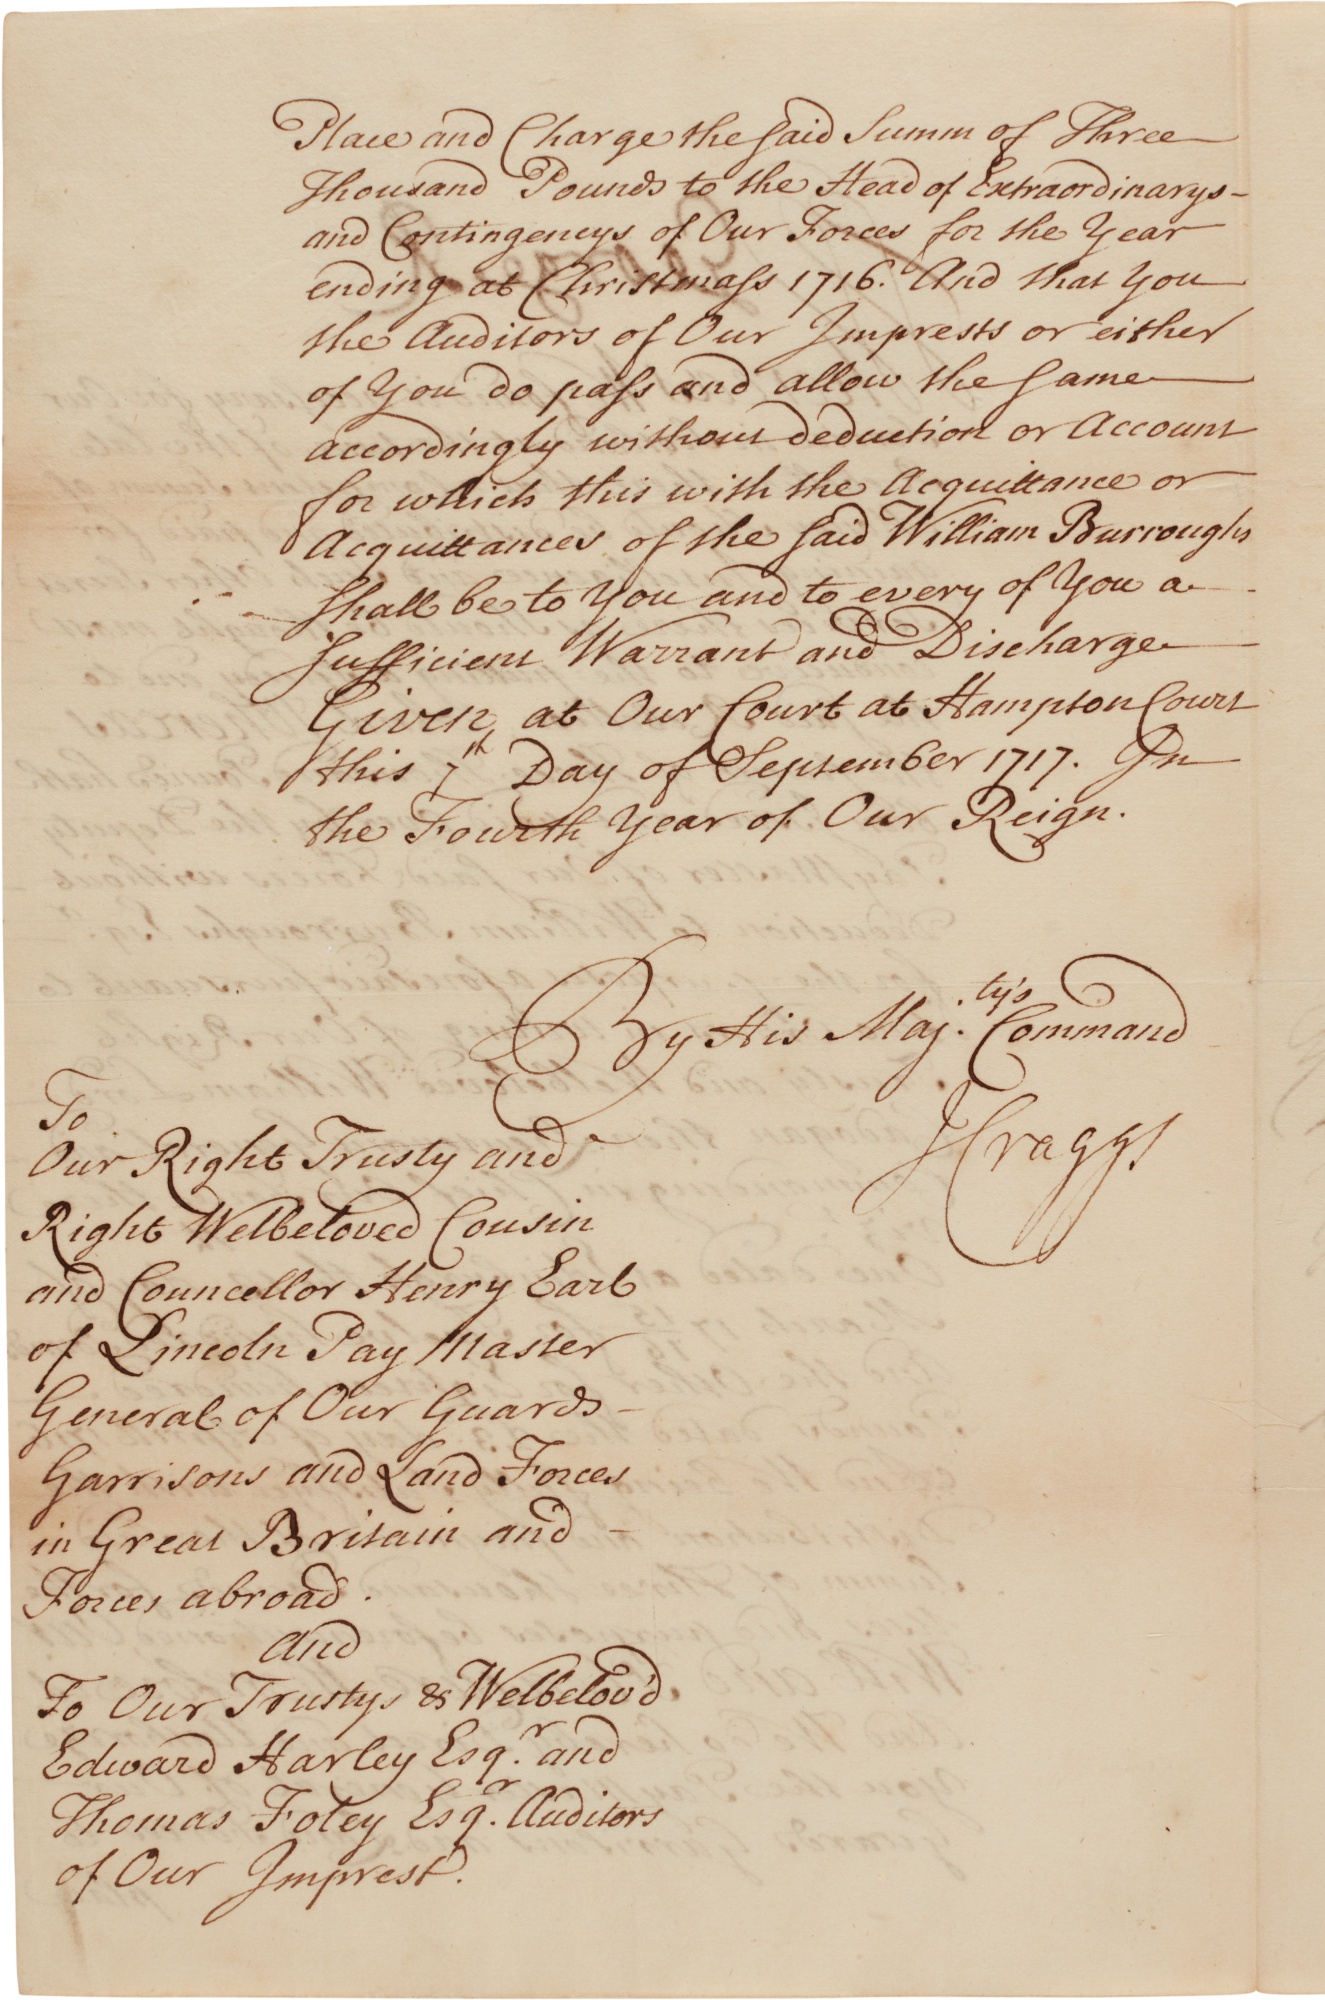 Place and Charge the said Summ of Three
Thousand Pounds to the Head of Extraordinarys
and Contingencys of Our Forces for the Year
ending at Christmass 1716. And that You
the Auditors of Our Imprests or either
of You do pass and allow the same
accordingly without deduction or Account
for which this with the Acquittance or
Acquittances of the said William Burroughs
shall be to You and to every of You a
sufficient Warrant and Discharge
Given at Our Court at Hampton Court
this 7th Day of September 1717. In
the Fourth Year of Our Reign.
By His Maj.ty's Command
J Craggs
To
Our Right Trusty and
Right Welbeloved Cousin
and Councellor Henry Earl
of Lincoln Pay Master
General of Our Guards
Garrisons and Land Forces
in Great Britain and
Forces abroad.
And
To Our Trustys & Welbelov'd
Edward Harley Esqr. and
Thomas Foley Esqr. Auditors
of Our Imprest.